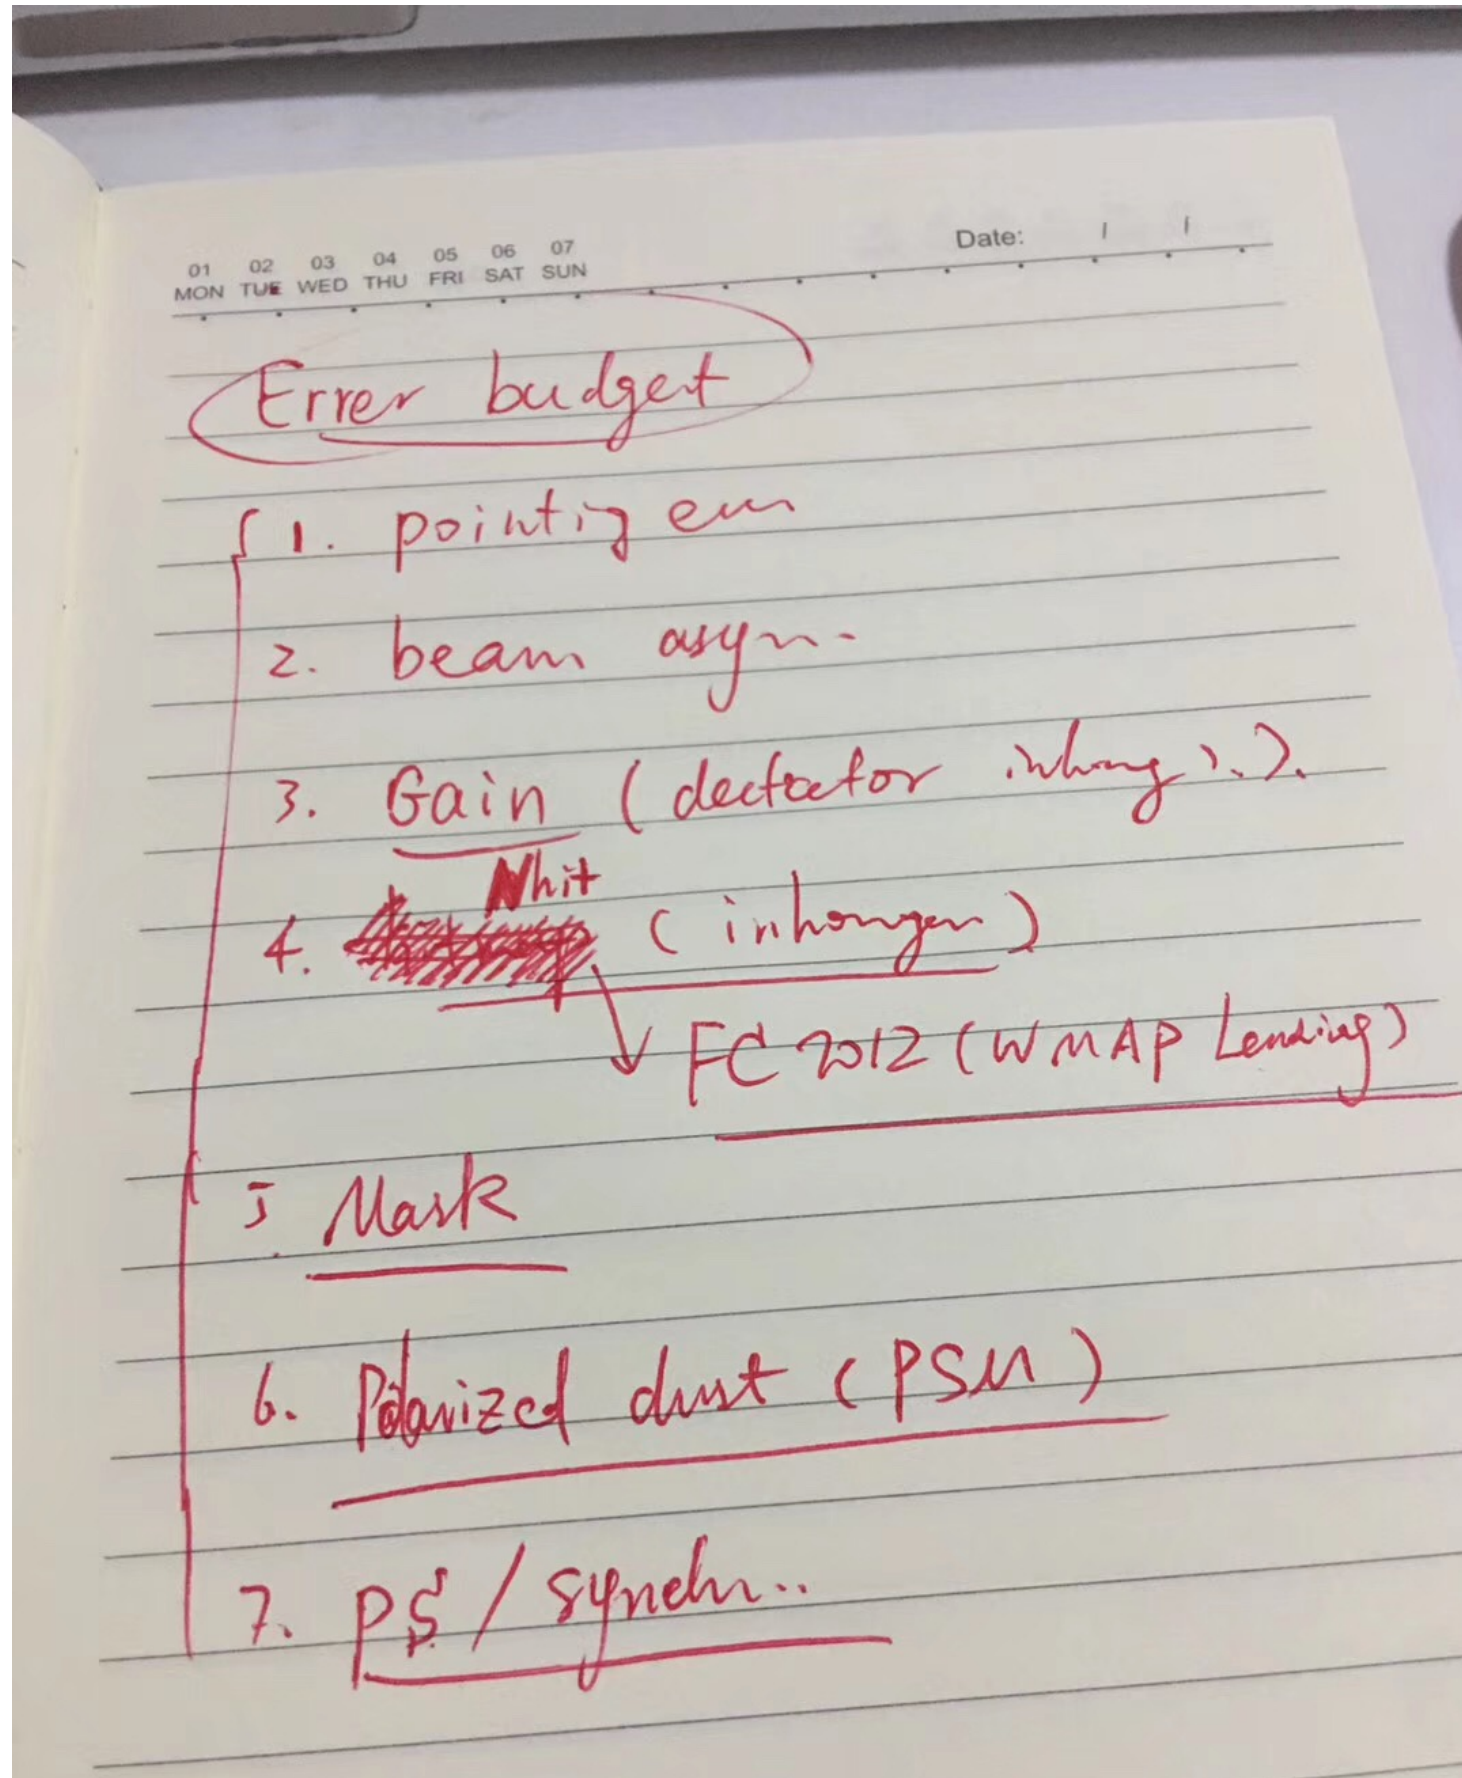 01 02 03 04 05 06 07
MON TUE WED THU FRI SAT SUN
Date: / /
Error budget
1. pointig
2. beam asym.
3. Gain (dectector
4. Nhit (inhomgen)
FC 2012 (WMAP Lensing)
5. Mask
6. Polarized dust (PSM)
7. PS / synchr..